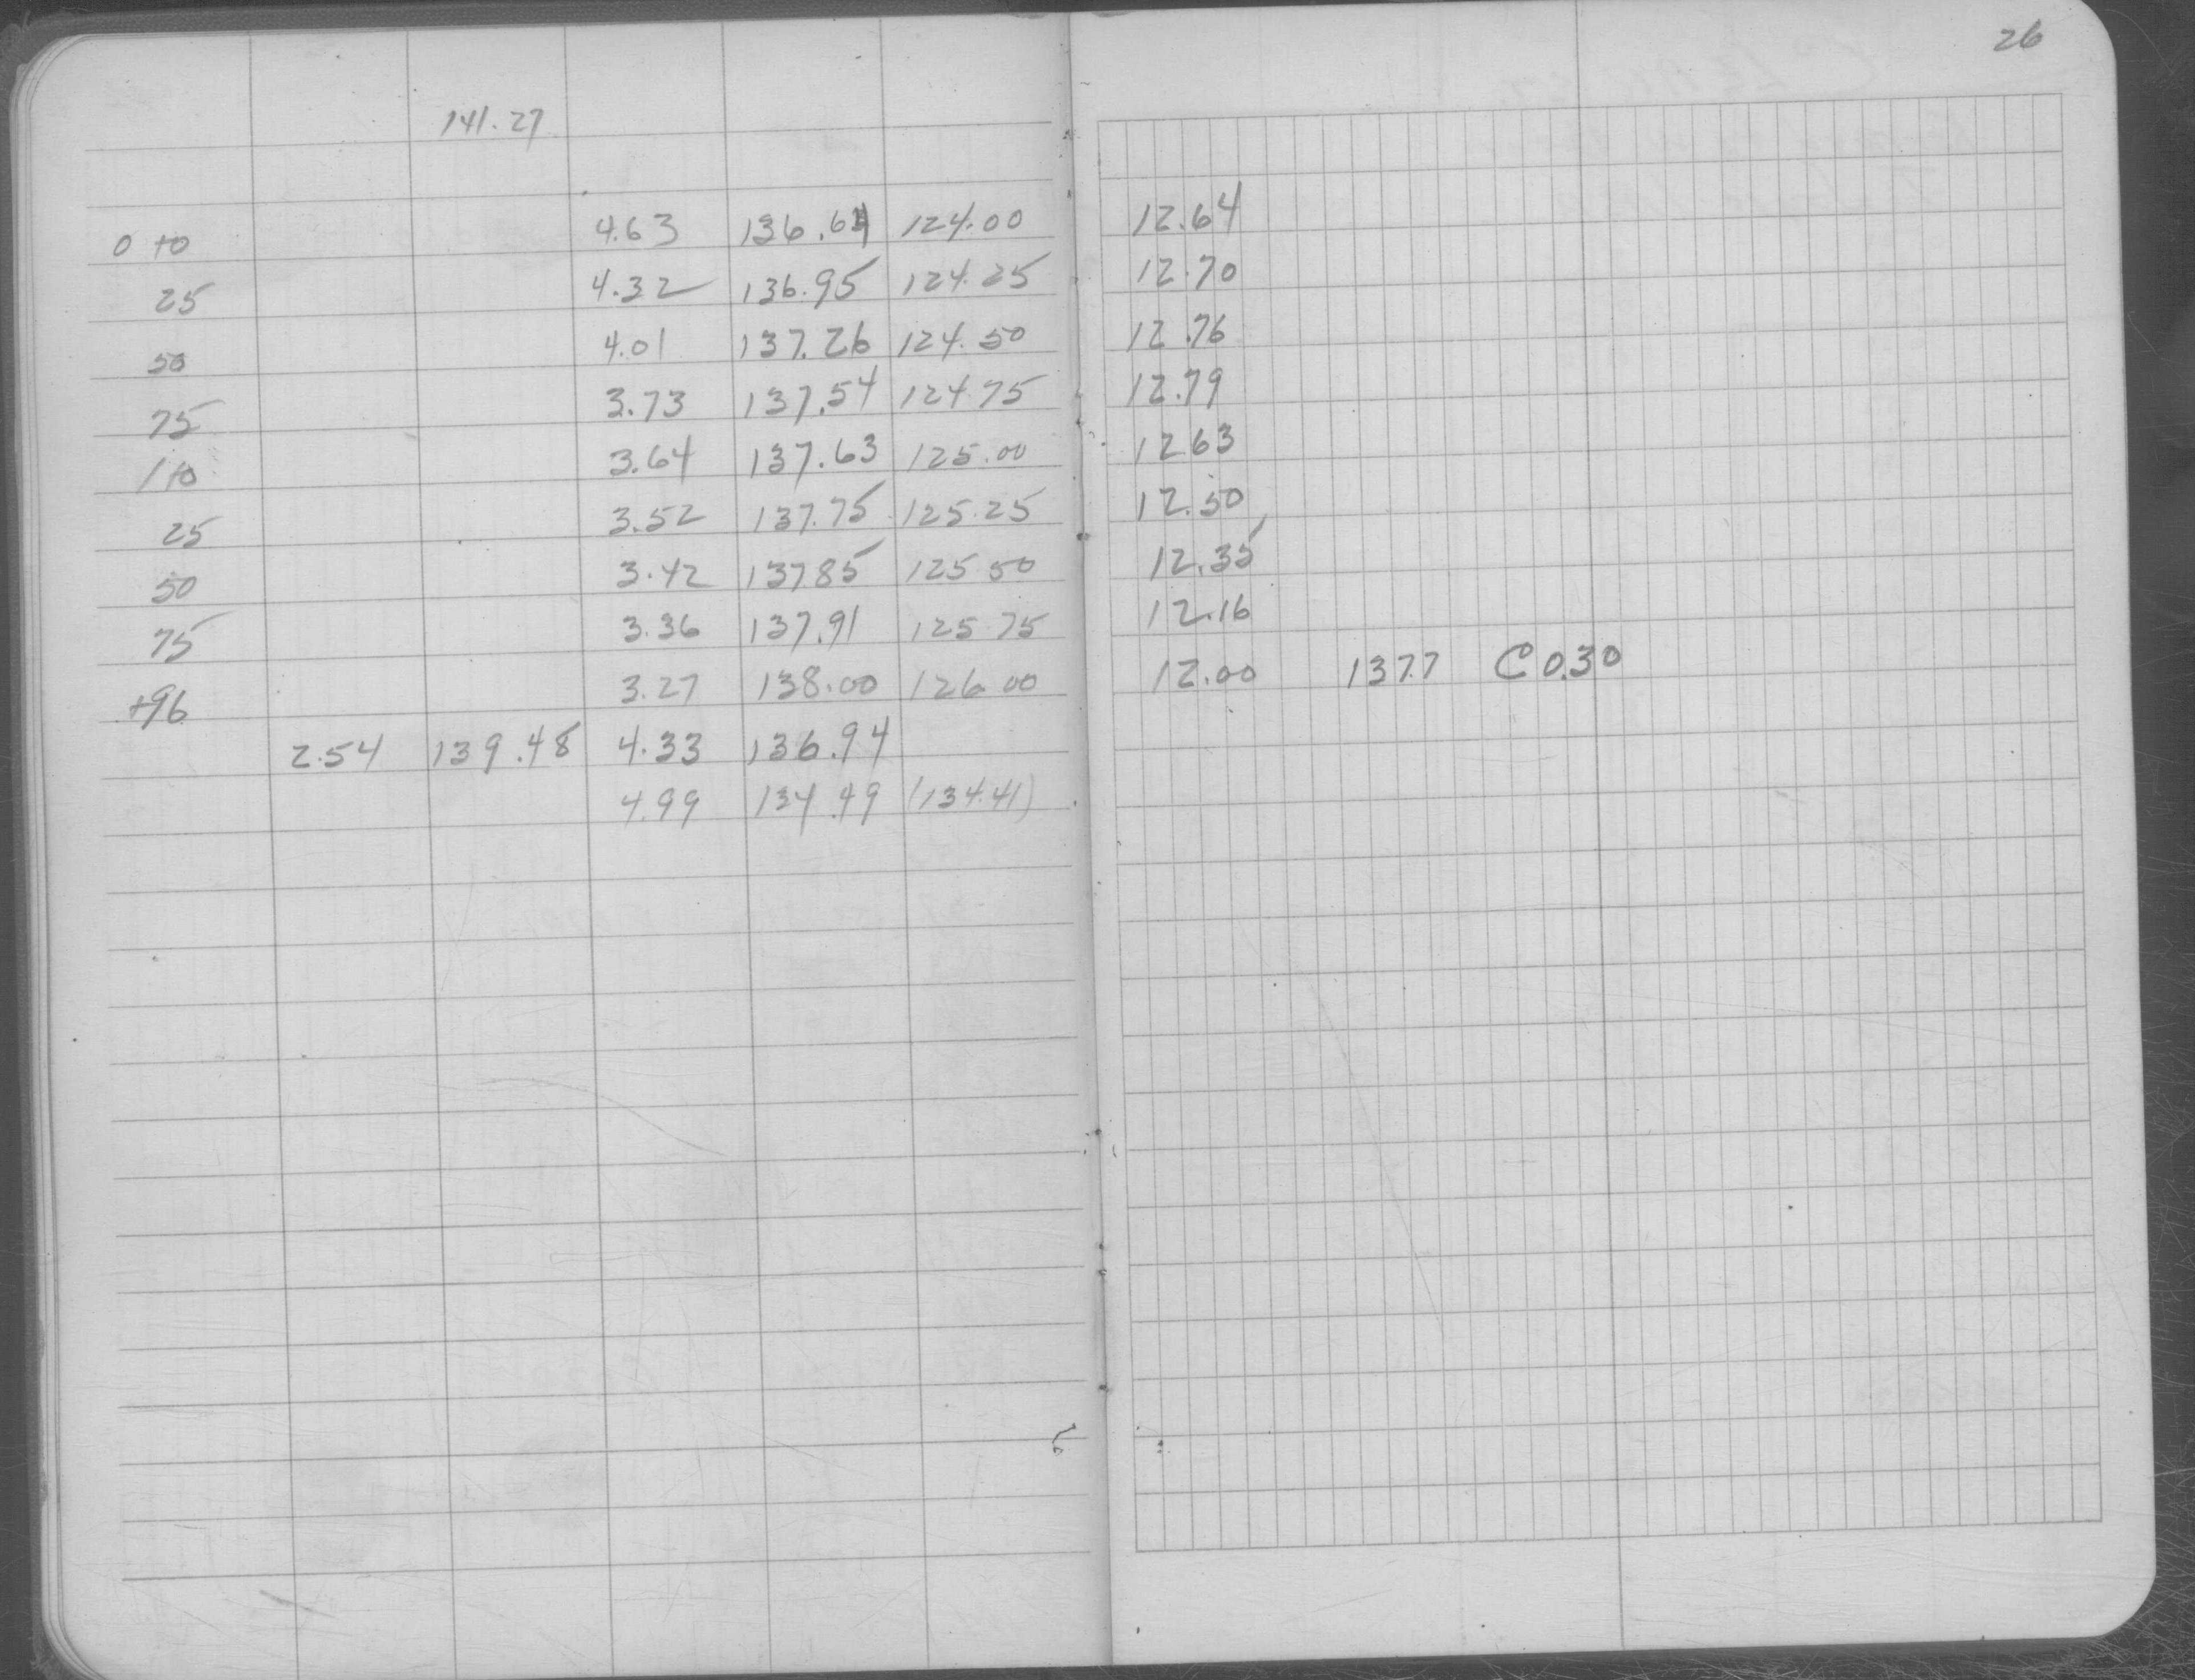 26
141.27
0+0 4.63 136.64 124.00 12.64
25 4.32 136.95 124.25 12.70
50 4.01 137.26 124.50 12.76
75 3.73 137.54 124.75 12.79
1+0 3.64 137.63 125.00 1263
25 3.52 137.75 125.25 12.50
50 3.42 13785 125 50 12.35
75 3.36 137.91 125 75 12.16
+96 3.27 138.00 126 00 12.00 137.7 C 0.30
2.54 139.48 4.33 136.94
4.99 134.49 (134.41)